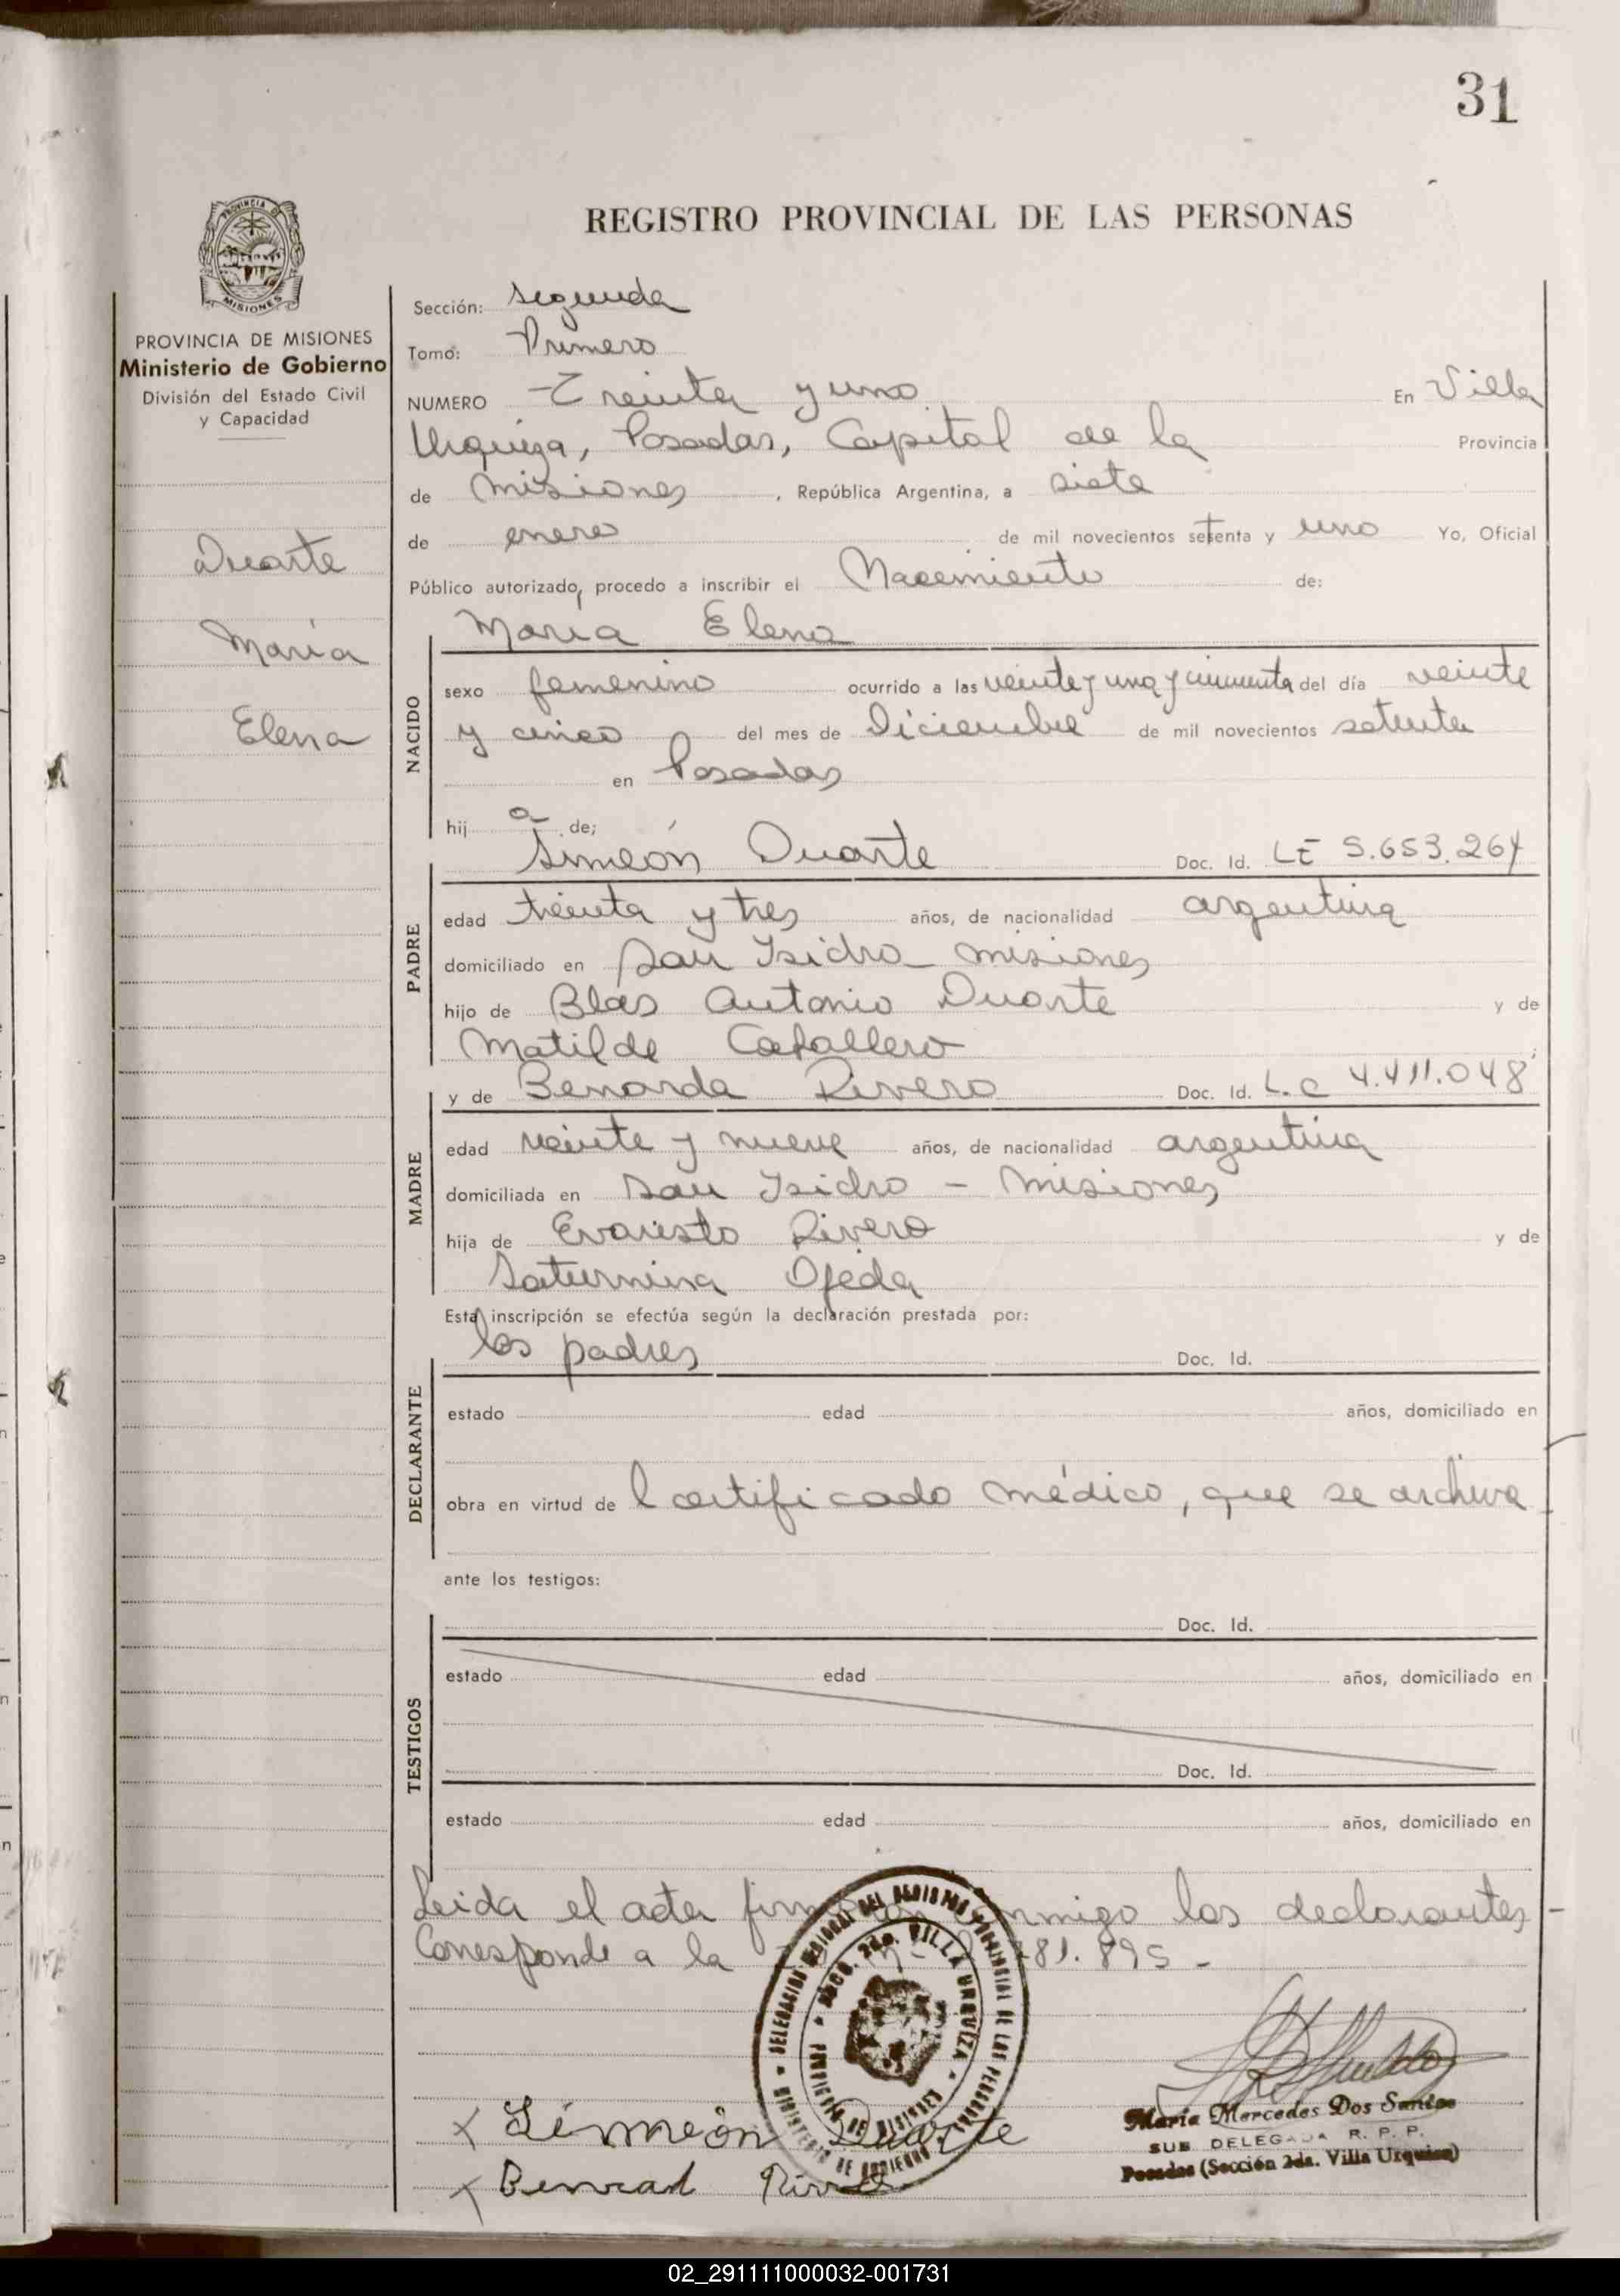 31
REGISTRO PROVINCIAL DE LAS PERSONAS
PROVINCIA DE MISIONES
Ministerio de Gobierno
División del Estado Civil
y Capacidad
Duarte
María
Elena
Sección: Segunda
Tomo: Primero
NUMERO Treinta y uno En Villa
Urquiza, Posadas, Capital de la Provincia
de Misiones, República Argentina, a siete
de enero de mil novecientos setenta y uno Yo, Oficial
Público autorizado, procedo a inscribir el Nacimiento de:
María Elena
NACIDO
sexo femenino ocurrido a las veinte y una y cincuenta del día veinte
y cinco del mes de Diciembre de mil novecientos setenta
en Posadas
hij a de;
Simeón Duarte Doc. Id. LE 5.653.264
PADRE
edad treinta y tres años, de nacionalidad argentina
domiciliado en San Isidro - Misiones
hijo de Blas Antonio Duarte y de
Matilde Caballero
y de Benarda Rivero Doc. Id. L.C 4.411.048
MADRE
edad veinte y nueve años, de nacionalidad argentina
domiciliada en San Isidro - Misiones
hija de Evaristo Rivero y de
Saturnina Ojeda
Esta inscripción se efectúa según la declaración prestada por:
los padres Doc. Id.
DECLARANTE
estado edad años, domiciliado en
obra en virtud de l certificado médico, que se archiva
ante los testigos:
Doc. Id.
TESTIGOS
estado edad años, domiciliado en
Doc. Id.
estado edad años, domiciliado en
Leida el acta conmigo los declarantes -
Corresponde a la 281.895 -
DELEGACION DEL REGISTRO PROVINCIAL DE LAS PERSONAS
SECC. 2da. VILLA URQUIZA
PROVINCIA DE MISIONES
MINISTERIO DE GOBIERNO
María Mercedes Dos Santos
SUB DELEGADA R. P. P.
Posadas (Sección 2da. Villa Urquiza)
x Simneón Duarte
x Rivero
02_291111000032-001731